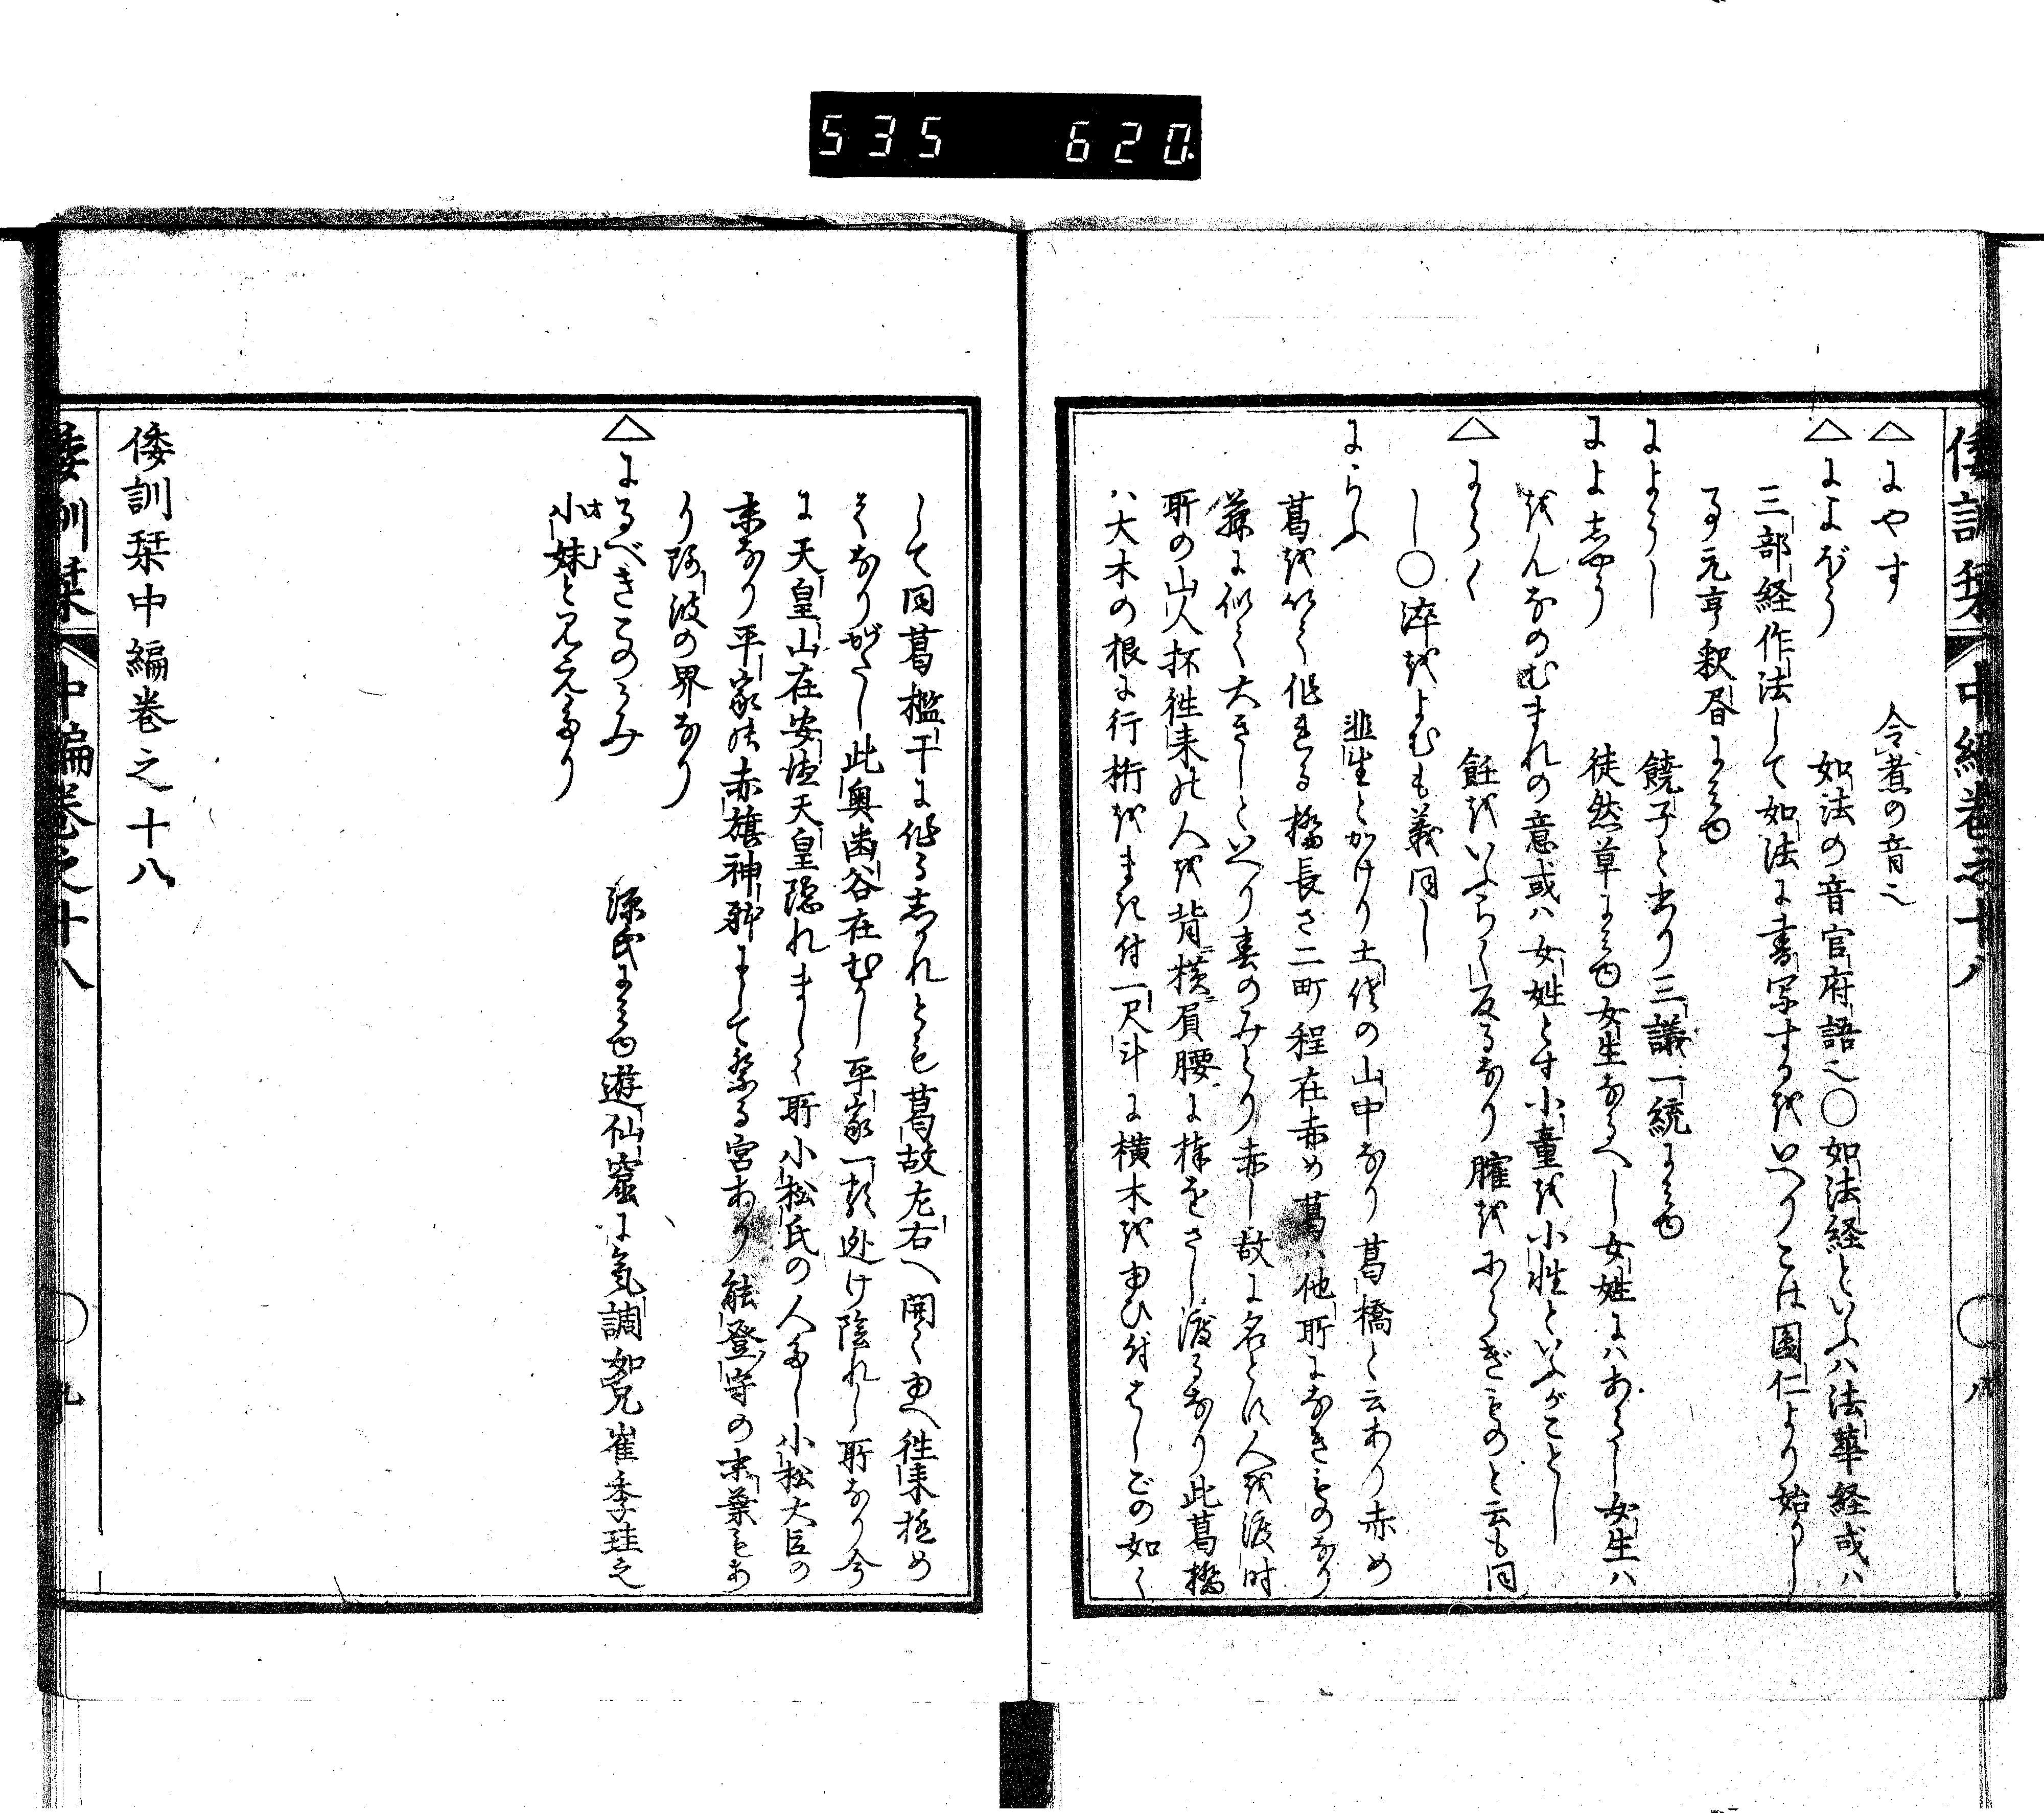 535 620.
倭訓栞 中編巻之十八 ○八
△にやす 令煮の音也
△によぼう 如法の音官府語也○如法経といふハ法華経或ハ
三部経作法して如法に書写するをいへりこは圓仁より始りし
る元亨釈書にみゆ
によう〳〵 饒子と書り三議一統にみゆ
によしやう 徒然草にみゆ女生なるへし女姓にハあらし女生ハ
をんなのむまれの意或ハ女姓とす小童を小性といふがことし
△にらく 飪をいふらく反るなり 䐹をにらぎものと云も同
し○淬をよむも義同し
にらふ 韮生とかけり土佐の山中なり葛橋と云あり赤め
葛を以て作れる橋長さ二町程在赤め葛ハ他所になきものなり
藤に似て大きしといへり春のみとり赤し故に名とす人を渡時
所の山人抔往来の人を背横眉腰に棒をさし渡るなり此葛橋
ハ大木の根に行桁をまき付一尺斗に横木をゆひ付はしごの如く
して同葛檻干に作るしかれとも葛故左右へ開くゆへ往来極め
てなりがたし此奥歯谷在むかし平家一類迯け隠れし所なり今
に天皇山在安徳天皇隠れまし〳〵所小松氏の人多し小松大臣の
末なり平家の赤旗神躰にして祭る宮あり能登守の末葉もあ
り阿波の界なり
△にるべきこのかみ 源氏にみゆ遊仙窟に気調如兄崔季珪之
小妹と見えたり
倭訓栞中編巻之十八
倭訓栞 中編巻之十八 ○九